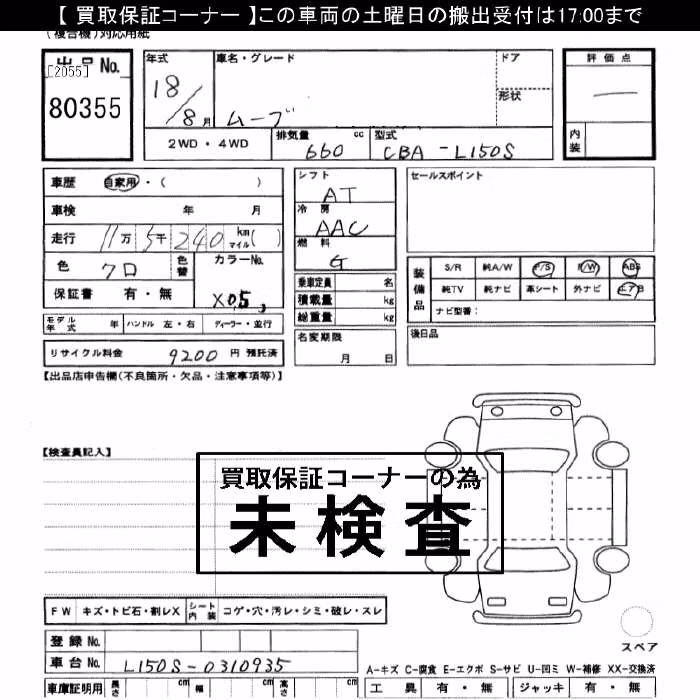 【 買取保証コーナー 】この車両の土曜日の搬出受付は17:00まで
(複合機)対応用紙
出品No.
[2055]
80355
年式
18/8月
車名・グレード
ムーブ
ドア
形状
2WD ・ 4WD
排気量
660 cc
型式
CBA-L150S
評価点
—
内装
車歴 自家用・( )
車検 年 月
走行 11万5千240 km マイル( )
色 クロ
色替
カラーNo.
X05
保証書 有・無
モデル年式 年 ハンドル 左・右 ディーラー・並行
リサイクル料金 9200 円 預託済
シフト
AT
冷房
AAC
燃料
G
乗車定員 名
積載量 kg
総重量 kg
名変期限
月 日
セールスポイント
装備品
S/R 純A/W P/S P/W ABS
純TV 純ナビ 革シート 外ナビ エアB
ナビ型番:
後日品
【出品店申告欄(不良箇所・欠品・注意事項等)】
【検査員記入】
買取保証コーナーの為
未検査
FW キズ・トビ石・割レX シート内装 コゲ・穴・汚レ・シミ・破レ・スレ
登録No.
車台No. L150S-0310935
車庫証明用 長さ cm 幅 cm 高さ cm
スペア
A-キズ C-腐食 E-エクボ S-サビ U-凹ミ W-補修 XX-交換済
工具 有・無 ジャッキ 有・無